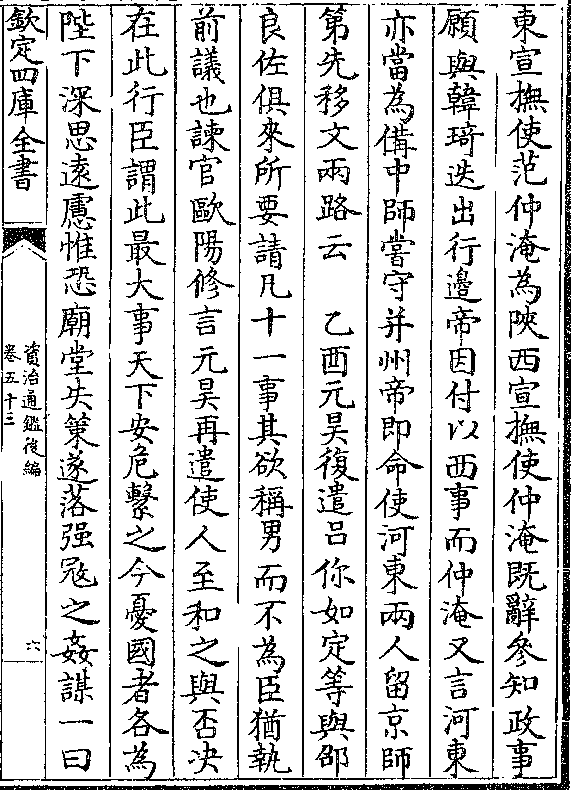 東宣撫使范仲淹為陝西宣撫使仲淹既辭參知政事
願與韓琦迭出行邊帝因付以西事而仲淹又言河東
亦當為備中師嘗守并州帝即命使河東兩人留京師
第先移文兩路云　乙酉元昊復遣吕你如定等與邵
良佐俱來所要請凡十一事其欲稱男而不為臣猶執
前議也諫官歐陽修言元昊再遣使人至和之與否決
在此行臣謂此最大事天下安危繫之今憂國者各為
陛下深思遠慮惟恐廟堂失策遂落强冦之姦謀一曰
欽定四庫全書
資治通鑑後編
卷五十三
六